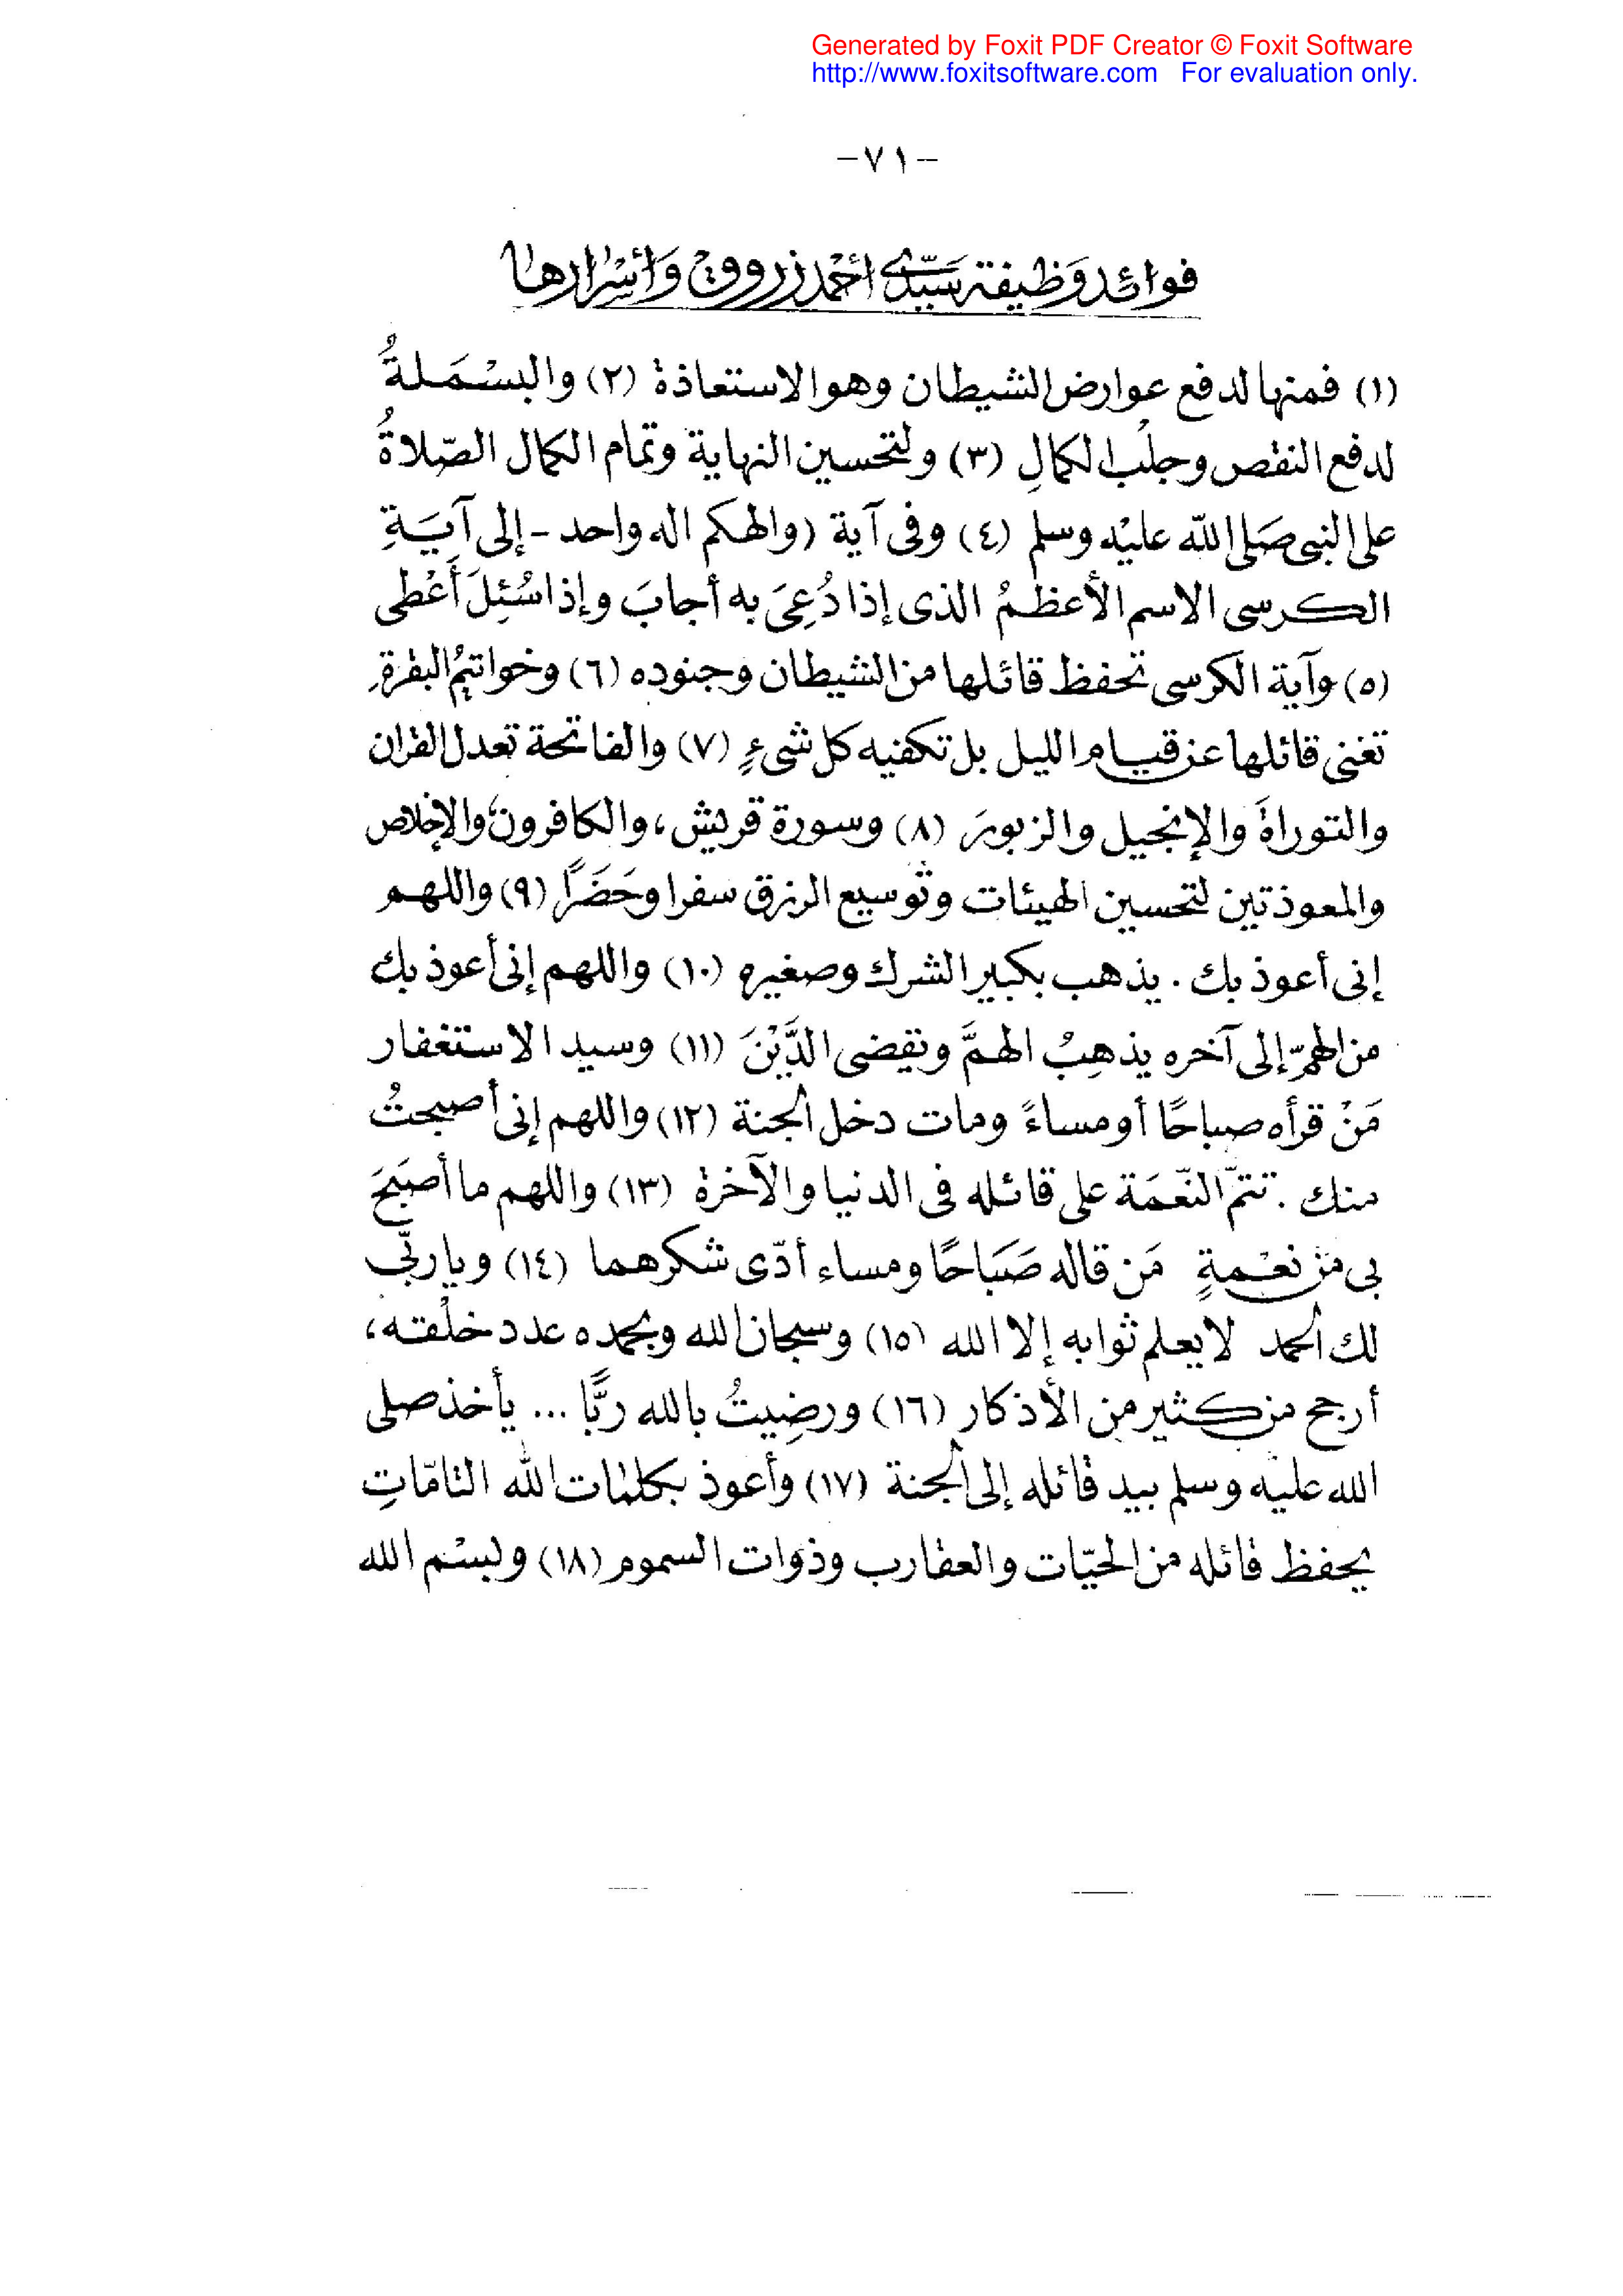 Generated by Foxit PDF Creator © Foxit Software
http://www.foxitsoftware.com For evaluation only.
-٧١-
فوائد وَظيفة سَيّدى أحْمد زروق وَأسْرَارها
(١) فمنها لدفع عوارض الشيطان وهو الاستعاذة (٢) والبسْمَلةُ
لدفع النقص وجلْب الكمالِ (٣) ولتحسين النهاية وتمام الكمال الصّلاةُ
على النبى صَلى اللّه عليْه وسلم (٤) وفى آية (والهكم اله واحد - إلى آيَةِ
الكرسى الاسم الأعظمُ الذى إذا دُعِىَ به أجابَ وإذا سُئِلَ أَعْطى
(٥) وآية الكرسى تحفظ قائلها من الشيطان وجنوده (٦) وخواتيمُ البقرة
تغنى قائلها عن قيام الليل بل تكفيه كل شىءٍ (٧) والفاتحة تعدل القرآن
والتوراةَ والإنجيل والزبورَ (٨) وسورة قريش، والكافرون، والإخلاص
والمعوذتين لتحسين الهيئات وتوسيع الرزق سفرا وحَضَرًا (٩) واللهم
إنى أعوذ بك . يذهب بكبير الشرك وصغيره (١٠) واللهم إنى أعوذ بك
من الهمّ إلى آخره يذهِبُ الهمَّ ويقضى الدَّيْنَ (١١) وسيد الاستغفار
مَنْ قرأه صباحًا أو مساءً ومات دخل الجنة (١٢) واللهم إنى أصبحتُ
منك . تتمّ النّعْمَة على قائله فى الدنيا والآخرة (١٣) واللهم ما أصبَحَ
بى من نعْمةٍ مَن قاله صَبَاحًا ومساء أدّى شكرهما (١٤) ويا ربّى
لك الحمد لا يعلم ثوابه إلا الله (١٥) وسبحان الله وبحمده عدد خلْقه،
أرجح من كثير من الأذكار (١٦) ورضِيتُ بالله ربًّا ... يأخذ صلى
الله عليه وسلم بيد قائله إلى الجنة (١٧) وأعوذ بكلمات الله التامّاتِ
يحفظ قائله من الحيّات والعقارب وذوات السموم (١٨) وبسْم الله